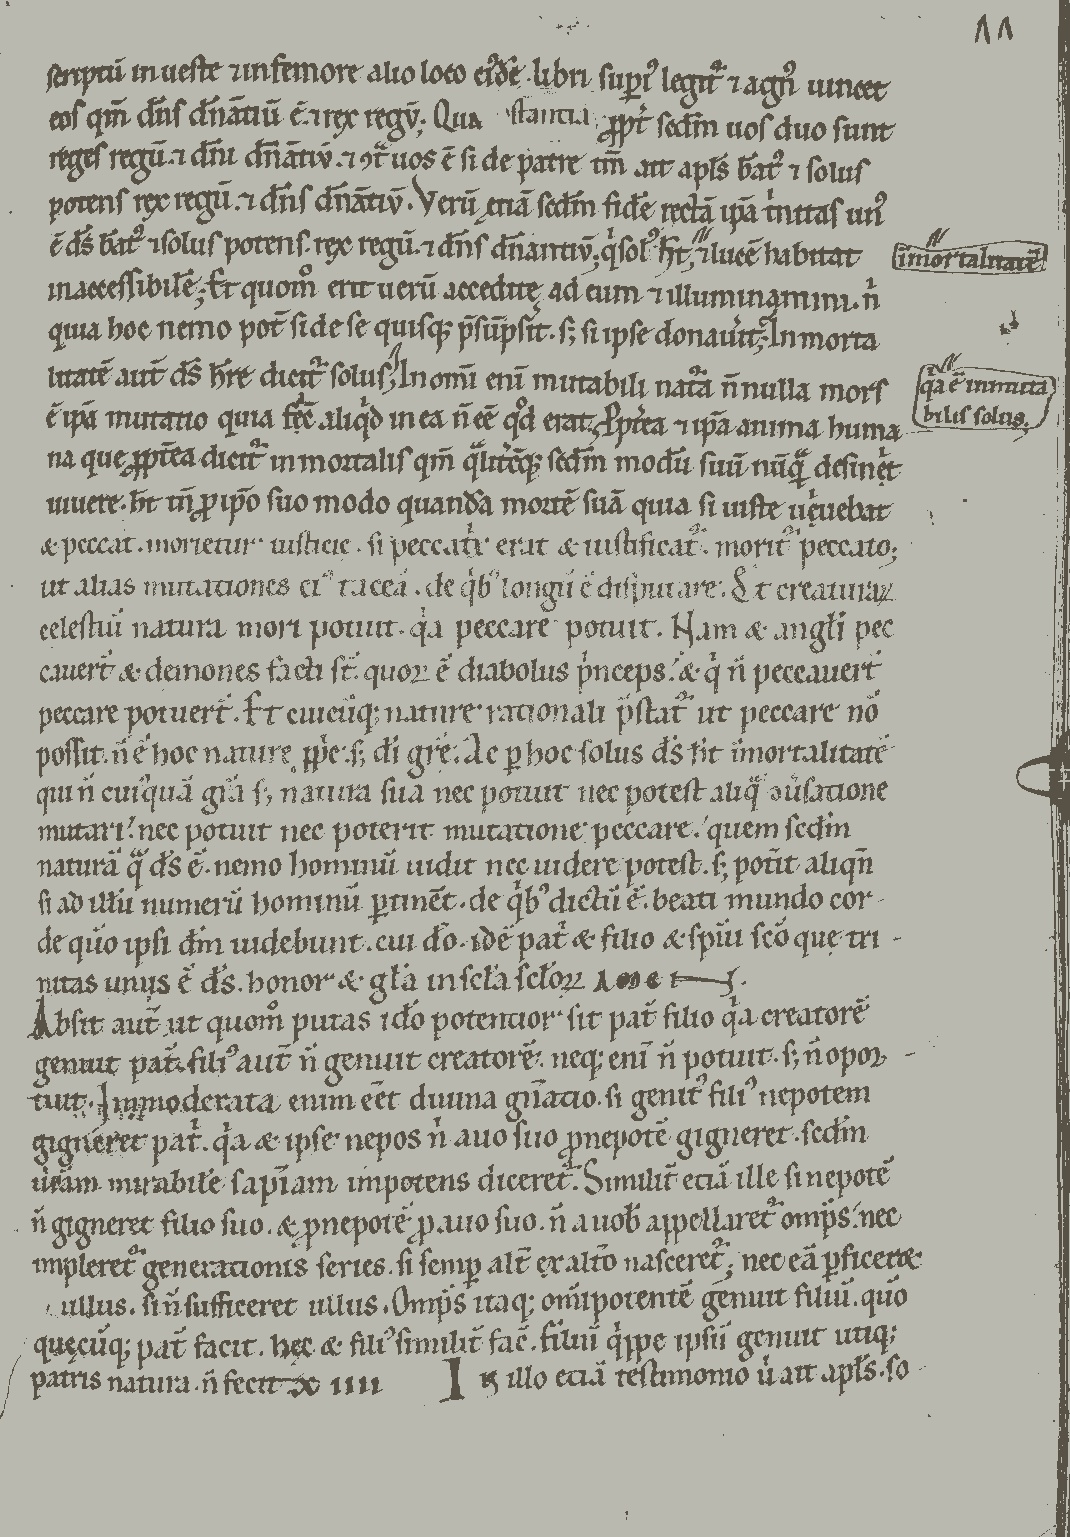 11
scriptū in ueste ⁊ in femore alio loco eiꝰdē libri supiꝰ legit᷑ ⁊ agnꝰ uincet
eos qm̄ dn̄s dn̄atiū ē ⁊ rex regū. Qua stantia ꝓpt̄ sed̄m uos duo sunt
reges regū ⁊ dn̄i dn̄atiū ⁊ ↄt̄ uos ē si de patre tm̄ ait apl̄s bat̄ꝰ ⁊ solus
potens rex regū ⁊ dn̄s dn̄atiū. Verū etiā sed̄m fidē rectā ipā t̍nitas unꝰ
ē d̄s bat̄ꝰ ⁊ solus potens. rex regū. ⁊ dn̄s dn̄antiū; q̍ solꝰ ħt, ⁊ lucē habitat
īmortalitatē
inaccessibilē; Et quom̊ erit uerū accedite ad eum ⁊ illuminamini. n̍
quia hoc nemo pot̄ si de se quisq; p̄sūpsit. s; si ipse donau̍it; In morta
litatē aut̄ d̄s ħre dicit᷑ solus; In om̄i eni mutabili nat̄a n̄ nulla mors
q̍a ē inmuta
bilis solus.
ē ipā mutatio quia fēc̄ aliq̍d in ea n̄ eē qd̊ erat. Ꝓpt̄ea ⁊ ipā anima huma
na que ꝓpt̄ea dicit᷑ inmortalis qm̄ q̄litc̄q; sed̄m modū suū nūq̄ desinet
uiuere. ħt tn̄ ꝓ ipō suo modo quandā mortē suā quia si iuste uiuebat
& peccat. morietur iusticie. si peccat̍ erat & iustificat᷑. morit᷑ peccato;
ut alias mutationes eiꝰ taceā. de q̍bꝰ longū ē disputare. Et creaturaꝝ
celestiū natura mori potuit. q̍a peccare potuit. Nam & angl̄i pec
cauer̄t & demones facti st̄. quoꝝ ē diabolus p̍nceps. & q̍ n̄ peccauer̄t
peccare potuer̄t. Et cuicūq; nature rationali p̄stat᷑ ut peccare nō
possit. n̄ ē hoc nature ꝓp̄e. s; di gr̄e. Ac ꝑ hoc solus d̄s ħt īmortalitatē
qui n̄ cuiꝰquā gr̄a s; natura sua nec potuit nec potest aliq̄ ↄuersatione
mutari. nec potuit nec poterit mutatione peccare. quem sed̄m
naturā q̄ d̄s ē. nemo hominū uidit nec uidere potest. s; pot̍it aliqn̄
si ad illū numerū hominū ꝑtinēt. de q̍bꝰ dictū ē. beati mundo cor-
de qūo ipsi dm̄ uidebunt. cui do̅. idē pat̍ & filio & sp̄iu scō que tri-
nitas unus ē d̄s. honor & gl̄a in scl̄a scl̄oꝝ amen.
Absit aut̄ ut quom̊ putas ido̅ potentior sit pat̄ filio q̍a creatorē
genuit pat̄. filiꝰ aut̄ n̄ genuit creatorē. neq; eni n̄ potuit. s; n̄ opor-
tuit. Immoderata enim eēt diuina gn̄atio. si genitꝰ filiꝰ nepotem
gigneret pat̍. q̍a & ipse nepos n̄ auo suo ꝓnepotē gigneret. sed̄m
uēam mirabilē sapīam impotens diceret᷑. Similit̄ etiā ille si nepotē
n̄ gigneret filio suo. & ꝓnepotē ꝓauo suo. n̄ a uob̄ appellaret᷑ omp̄s. nec
impleret᷑ generationis series. si semꝑ alt̄ ex alto̅ nasceret᷑; nec eā ꝑficeret
ullus. si n̄ sufficeret ullus. Omp̄s itaq; om̄ipotentē genuit filiū. quo̅
quęcūq; pat̄ facit. hęc & filiꝰ similit̄ fac̄. filiū q̍ppe ipsū genuit utiq;
patris natura. n̄ fecit XIIII In illo etiā testimonio u̍ ait apl̄s. so